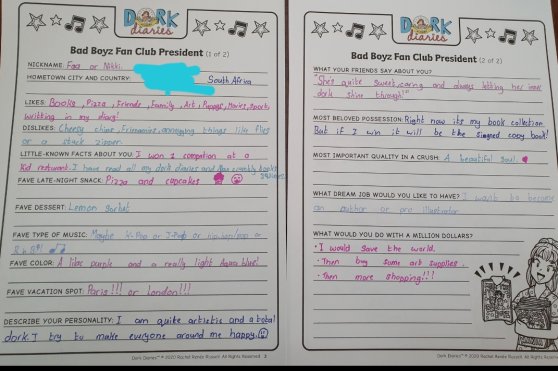 DORK
diaries
Bad Boyz Fan Club President (1 of 2)
NICKNAME: or Nikki.
HOMETOWN CITY AND COUNTRY: South Africa
LIKES: Books, Pizza, Friends, Family, Art, Puppys, Movies, Sports,
writting in my diary!
DISLIKES: Cheesy chips, Frienemies, annoying things like flies
or a stuck zipper.
LITTLE-KNOWN FACTS ABOUT YOU: I won 1 compation at a
Kid resturant. I have read all my dork diaries and Max crumbly books
FAVE LATE-NIGHT SNACK: Pizza and cupcakes
FAVE DESSERT: Lemon Sorbet
FAVE TYPE OF MUSIC: Maybe K-Pop or J-Pop or hip hop/pop or
R n B!
FAVE COLOR: A lilac purple and a really light Aqua blue!
FAVE VACATION SPOT: Paris!!! or London!!!
DESCRIBE YOUR PERSONALITY: I am quite artistic and a total
dork. I try to make everyone around me happy.
Dork Diaries™ © 2020 Rachel Renée Russell. All Rights Reserved. 3
DORK
diaries
Bad Boyz Fan Club President (2 of 2)
WHAT YOUR FRIENDS SAY ABOUT YOU?
"She's quite sweet, caring and always letting her inner
dork shine through!"
MOST BELOVED POSSESSION: Right now its my book collection
But if I win it will be the signed copy book!
MOST IMPORTANT QUALITY IN A CRUSH: A beautiful Soul.
WHAT DREAM JOB WOULD YOU LIKE TO HAVE? I want to become
an author or pro illustrator
WHAT WOULD YOU DO WITH A MILLION DOLLARS?
• I would save the world.
• Then buy some art supplies.
• Then more shopping!!!
Dork Diaries™ © 2020 Rachel Renée Russell. All Rights Reserved.